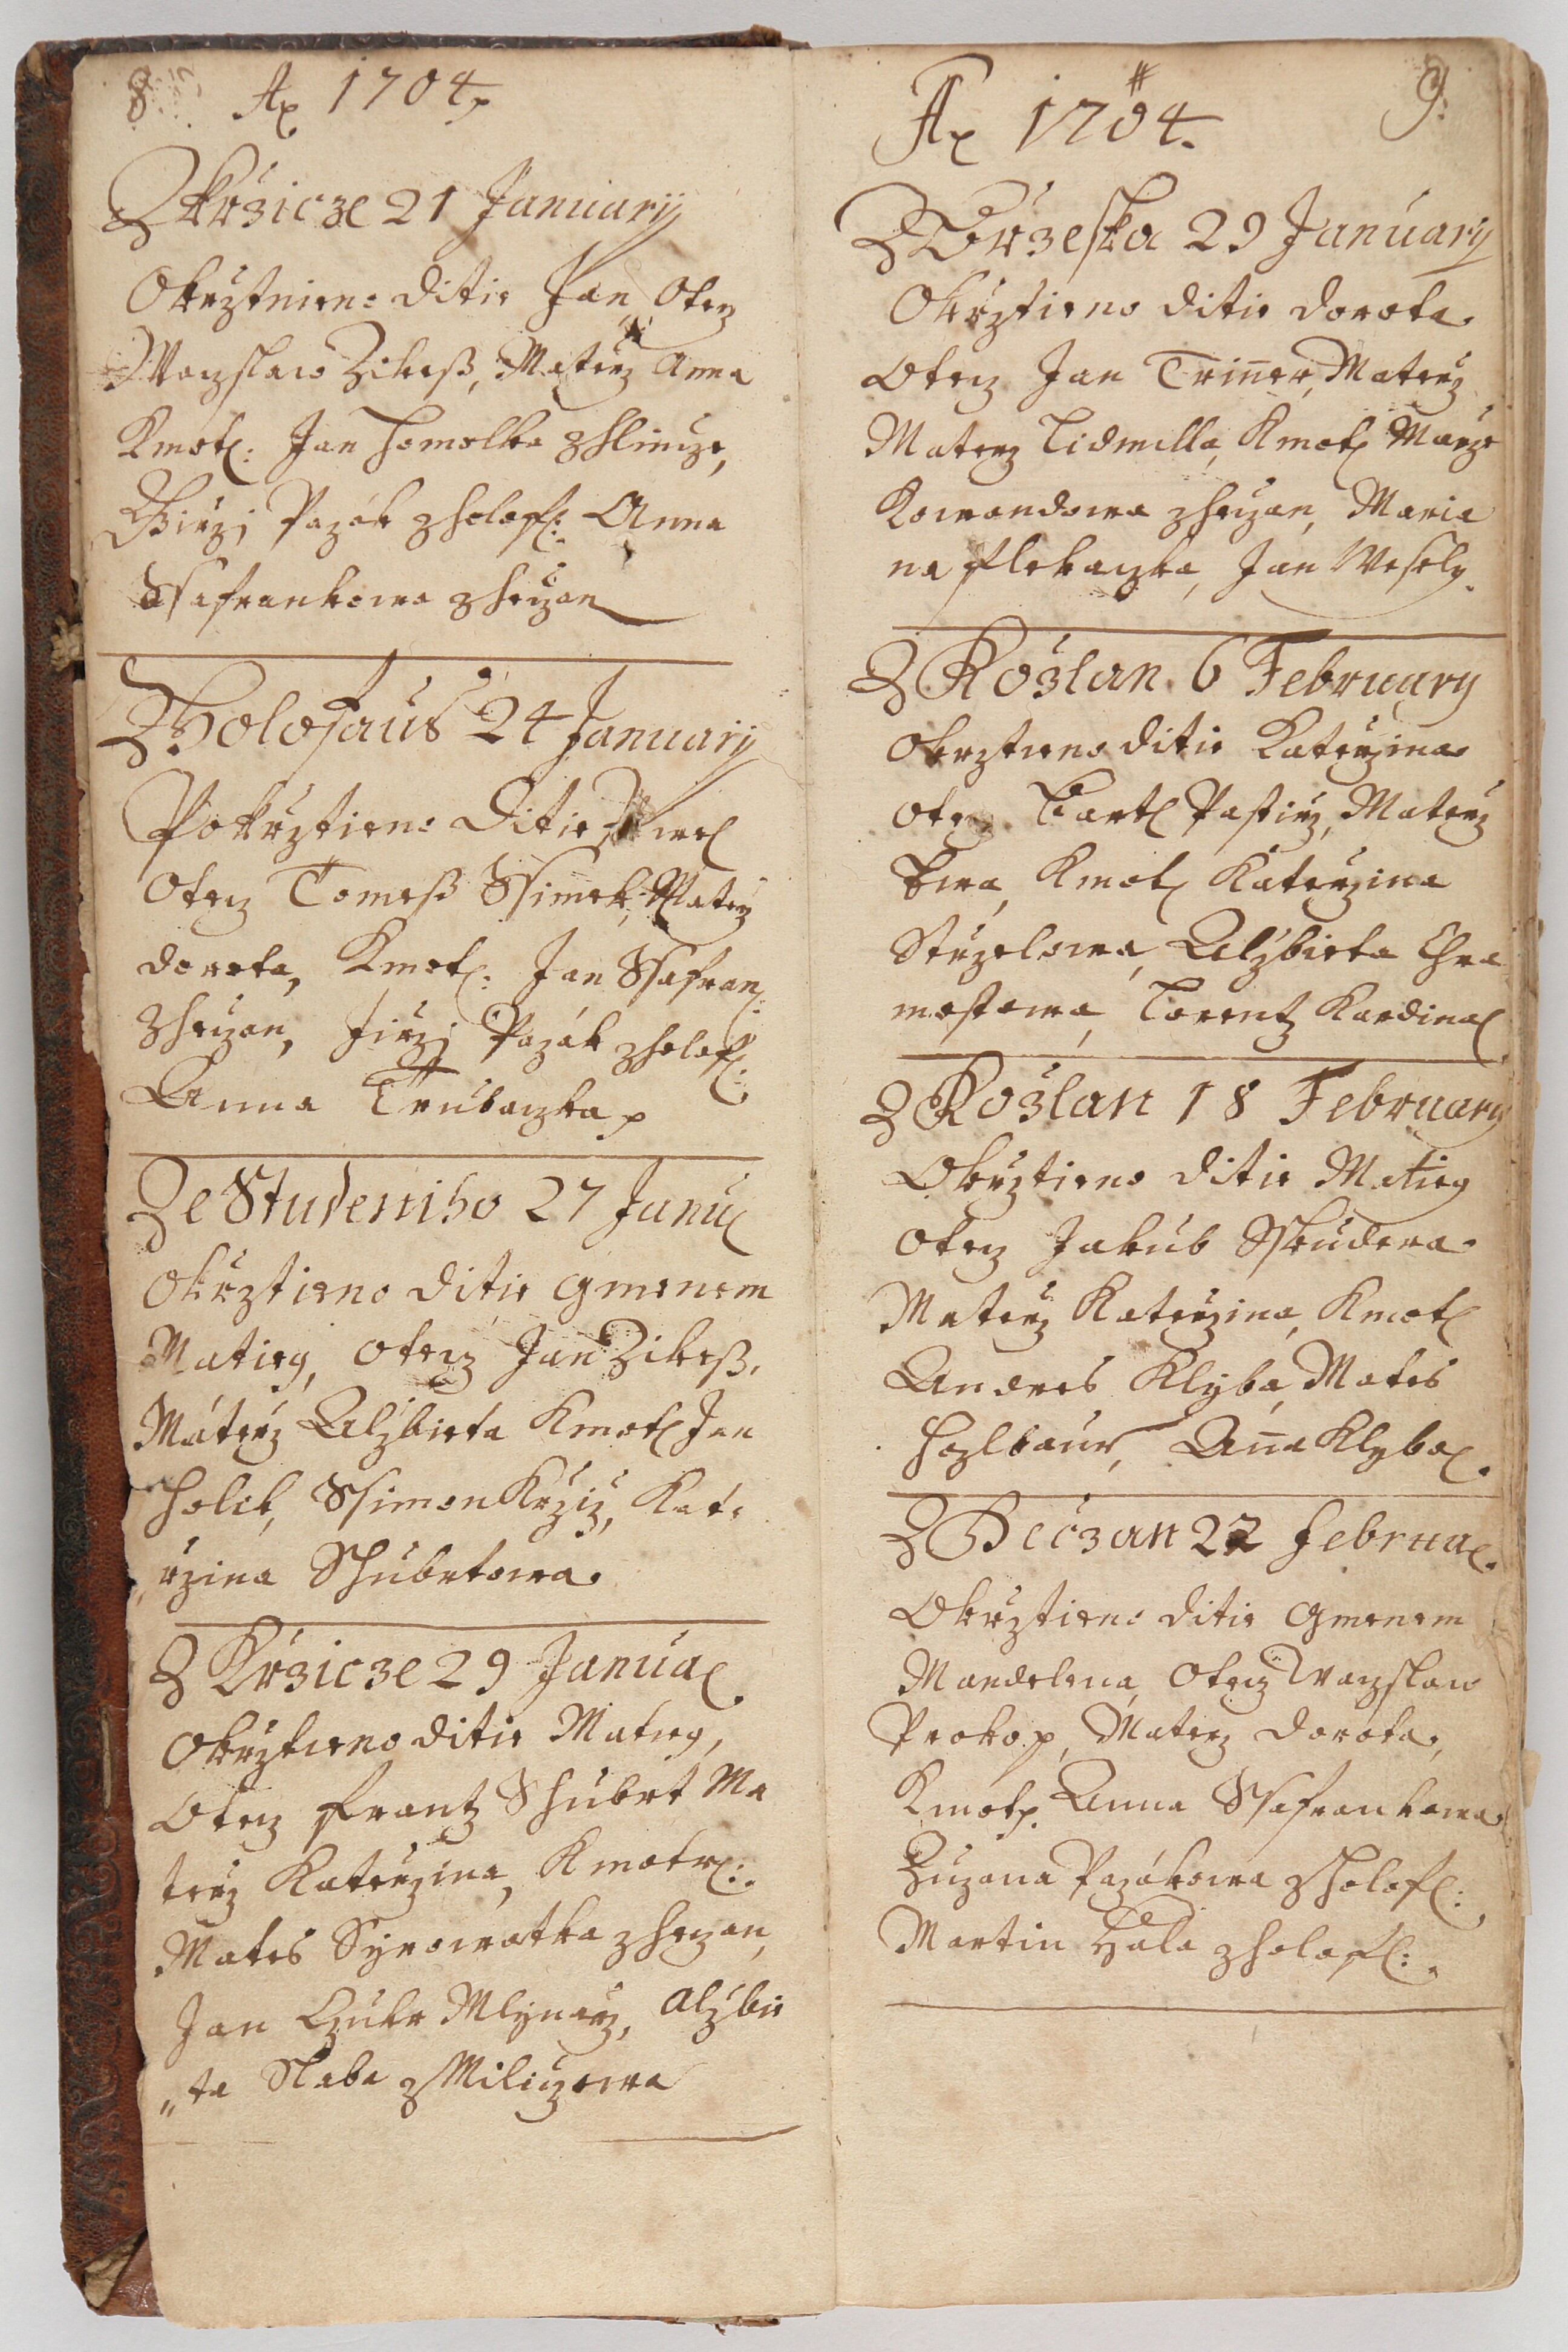 8 Ao 1704
Z Krzicze 21 January
Okrztieno Ditie Jan, Otecz
Waczslaw Zikeß, Materz Anna
Kmotr: Jan Homolka z Hlincze,
Girzi Pazák z Holof: Anna
Ssafrankowa z Heczan
Z Holofaus 24 January
Pokrztieno Ditie
Otecz Tomeß Ssimek, Materz
Dorota, Kmotr: Jan Ssafran:
z Heczan, Jirzi Pazák z Holof:
Anna Trubaczka
Ze Studeniho 27 Janu:
Okrztieno Ditie Gmenem
Matieg, Otecz Jan Zikeß,
Máterz Alzbieta Kmotr Jan
Holik, Ssimon Krziz, Kate
rzina Schubrtowa.
Z Krzicze 29 Janua:
Okrztieno Ditie Matieg,
Otecz Frantz Schubrt Ma
terz Katerzina, Kmotr:
Mates Syrowatka z Heczan,
Jan Czukr Mlynarz, Alzbie
„ta Slaba z Miliczowa
Ao 1704. 9.
Z Brzeska 29 January
Okrztieno Ditie Dorota.
Otecz Jan Triner, Materz
Materz Lidmilla, Kmotr
Komandowa z Heczan, Maria
na Flekaczka, Jan Wesely.
Z Rozlan 6 February
Okrztieno Ditie Katerzina
Otecz Bartl Pastirz, Materz
Ewa, Kmotr Katerzina
Strzelowa, Alzbieta Chra
mostowa, Lorentz Kardinal
Z Rozlan 18 February
Okrztieno Ditie Matieg
Otecz Jakub Sskudera
Materz Katerzina, Kmotr
Andres Klyba, Mates
Hozlbaur, Anna Klyba:
Z Heczan 22 Februa:
Okrztieno Ditie Gmenem
Mandelena, Otecz Waczslaw
Prokop, Materz Dorota,
Kmotr. Anna Ssafrankowa
Zuzana Pazákowa z Holof:
Martin Hala z Holof: